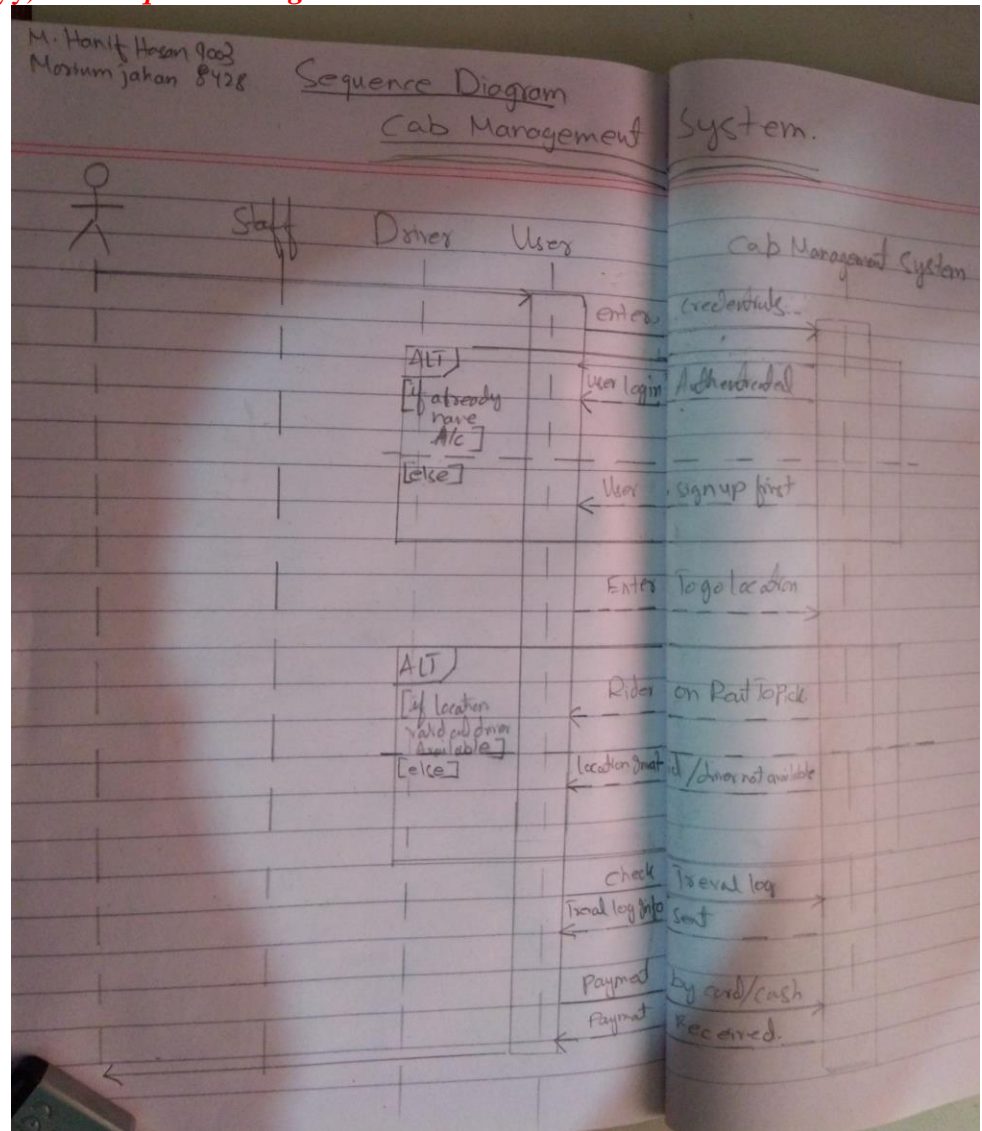 M. Hanif Hasan 9003
Morium jahan 8428
Sequence Diagram
Cab Management System.
Staff Driver User Cab Management System
enter credentials..
ALT
[if already have A/c]
User login Authenticated
[else]
User signup first
Enter To go location
ALT
[if location valid and driver Available]
Rider on Rout To Pick
[else]
location / driver not available
check Treval log
Treval log Info sent
Payment by card/cash
Paymat Received.